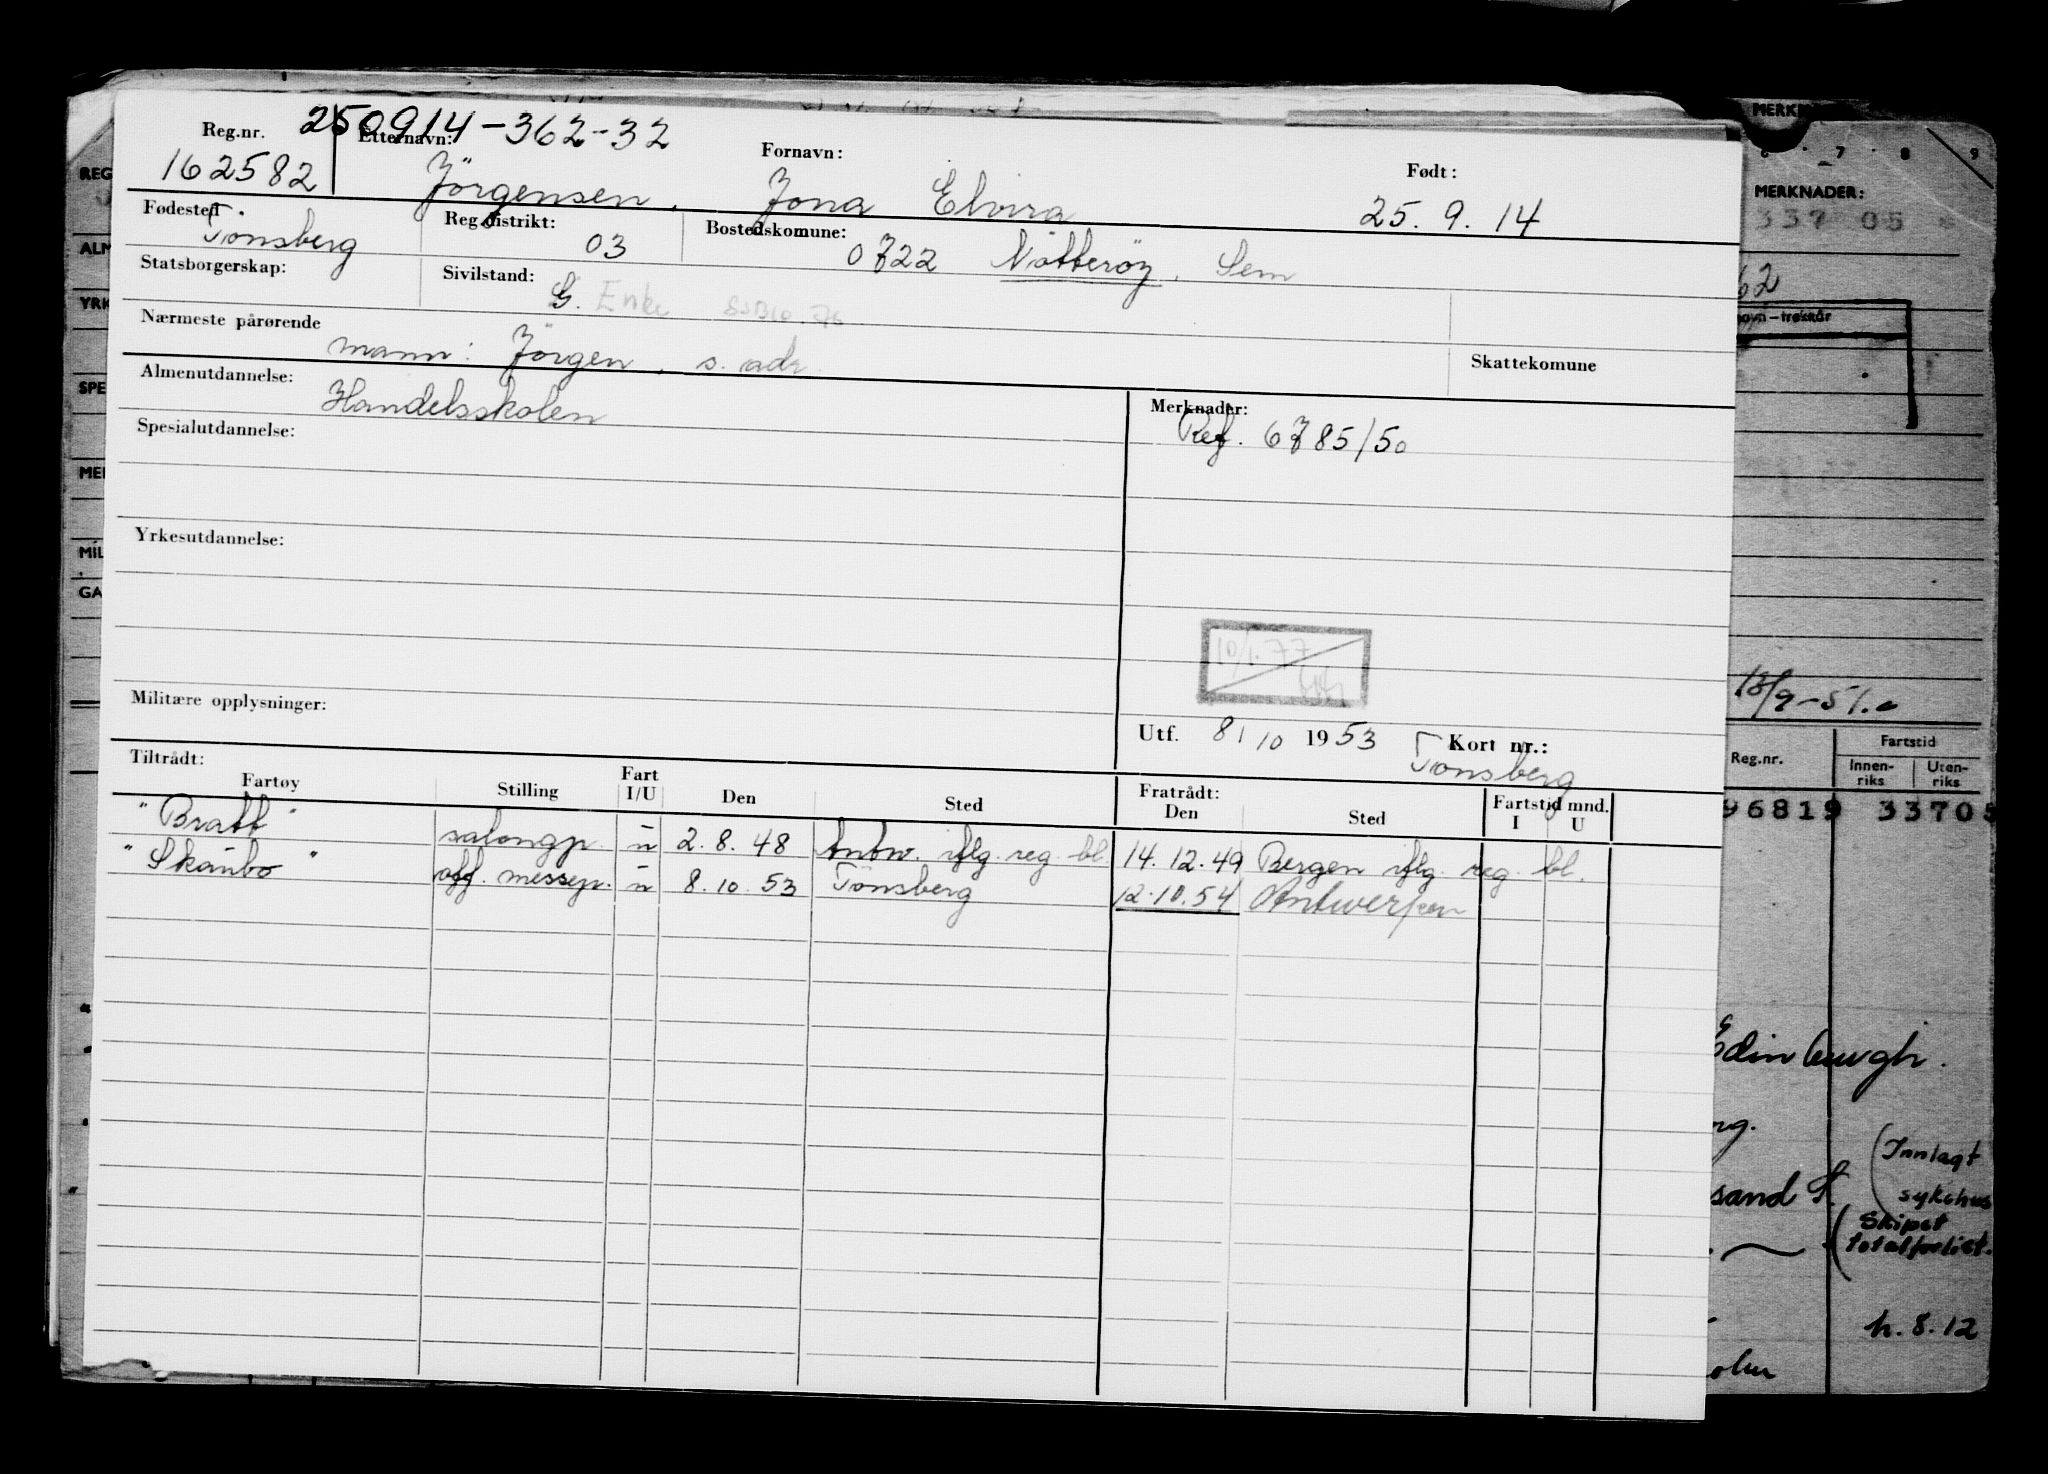 250914-362-32
Reg.nr. Etternavn: Fornavn: Født:
162582 Jörgensen, Jona Elvira 25. 9. 14
Fødested Reg.distrikt: Bostedskomune:
Tönsberg 03 0722 Nötteröy, Sem
Statsborgerskap: Sivilstand:
G. Enke
Nærmeste pårørende
mann: Jörgen, s. adr. Skattekomune
Almenutdannelse:
Handelsskolen Merknader:
Spesialutdannelse: Ref. 6785/50
Yrkesutdannelse:
10/1.77
Militære opplysninger:
Utf. 8/10 1953 Kort nr.:
Tönsberg
Tiltrådt: Fratrådt:
Fartøy Stilling Fart I/U Den Sted Den Sted Fartstid mnd. I U
"Bratt" salongp. u 2. 8. 48 Antw. iflg. reg. bl. 14. 12. 49 Bergen iflg. reg. bl.
"Skaubo" off. messep. u 8. 10. 53 Tönsberg 12. 10. 54 Antwerpen
REG
ALM
YRK
SPE
MER
MIL
GA
MERKN
7 8 9
MERKNADER:
337 05
62
13/9-51.
Reg.nr. Fartstid
Innen- riks Uten- riks
96819 33705
Edinburgh.
rg.
(Innlagt
sykehus
sand S.
(Skipet
totalforlist.
h. 8. 12
olm